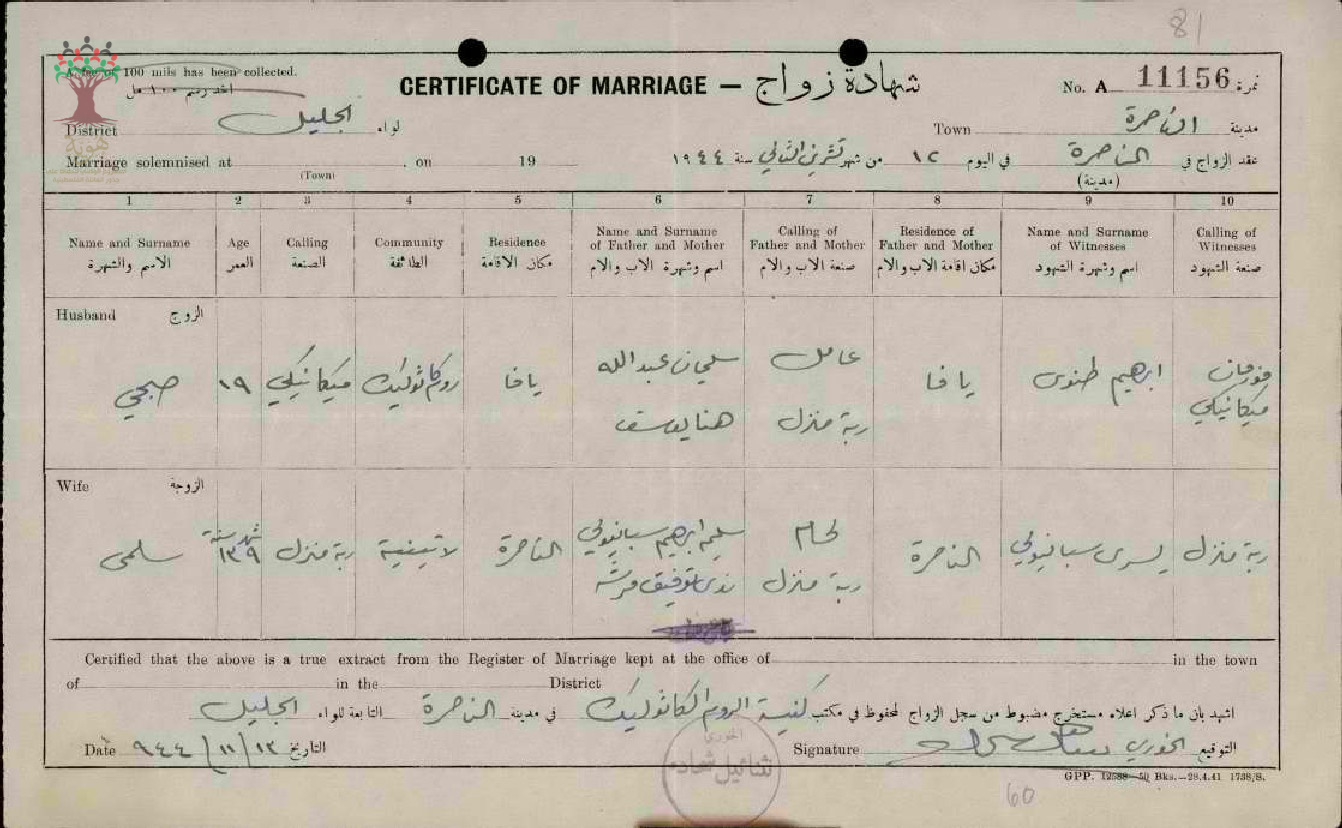 81
A fee of 100 mils has been collected.
اخذ رسم ١٠٠ مل
CERTIFICATE OF MARRIAGE — شهادة زواج
No. A 11156 نمرة
District الجليل لواء
Town الناصرة مدينة
Marriage solemnised at on 19
(Town)
عقد الزواج في الناصرة في اليوم ١٢ من شهر تشرين الثاني سنة ١٩٤٤
(مدينة)
هوية
1 2 3 4 5 6 7 8 9 10
Name and Surname
الاسم والشهرة
Age
العمر
Calling
الصنعة
Community
الطائفة
Residence
مكان الاقامة
Name and Surname
of Father and Mother
اسم وشهرة الاب والام
Calling of
Father and Mother
صنعة الاب والام
Residence of
Father and Mother
مكان اقامة الاب والام
Name and Surname
of Witnesses
اسم وشهرة الشهود
Calling of
Witnesses
صنعة الشهود
Husband الزوج
صبحي
١٩
ميكانيكي
روم كاثوليك
يافا
سليمان عبدالله
هنا يوسف
عامل
ربة منزل
يافا
ابرهيم طنوس
ميكانيكي
Wife الزوجة
سلمى
ربة منزل
لاتينية
الناصرة
سليم ابرهيم سبانيولي
توفيق
لحام
ربة منزل
الناصرة
يسرى سبانيولي
ربة منزل
Certified that the above is a true extract from the Register of Marriage kept at the office of in the town
of in the District
اشهد بان ما ذكر اعلاه مستخرج مضبوط من سجل الزواج المحفوظ في مكتب كنيسة الروم الكاثوليك في مدينة الناصرة التابعة للواء الجليل
Date ٩٤٤/١١/١٢ التاريخ
Signature الخوري التوقيع
الخوري
نثنائيل شحاده
GPP. 12588—50 Bks.—28.4.41 1738/S.
60